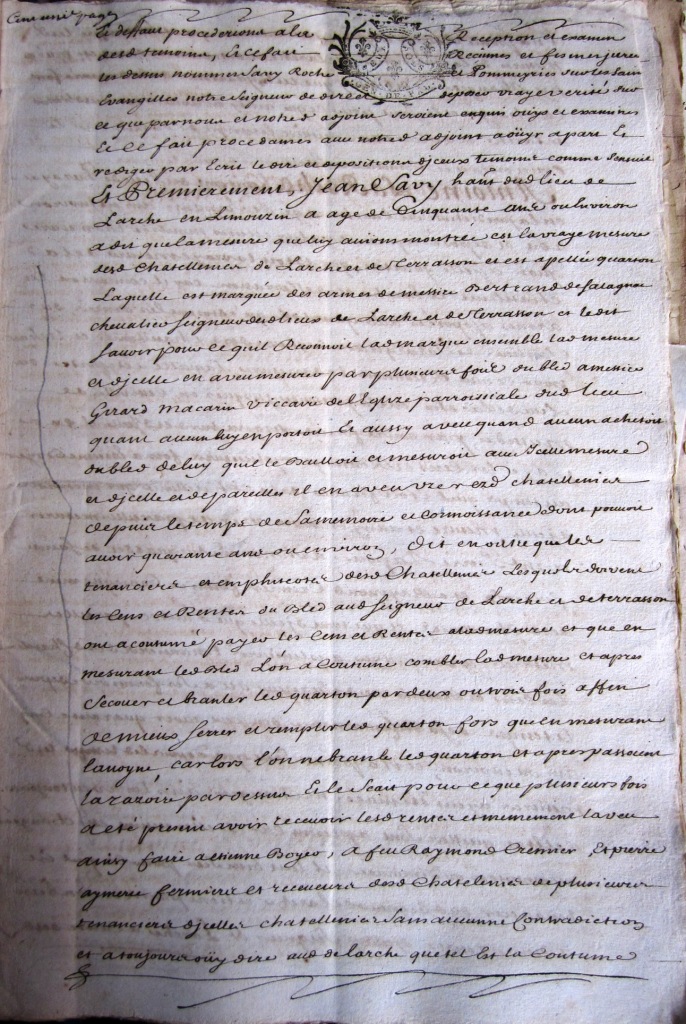 Cinquieme page
le dessus procederions a la Reception et examen
desd temoins, Et ce fait receumes et fismes jurer
les dessus nommes Savy Roche et Pommeyries sur les Sain
Evangilles notre Seigneur de dire et deposer vraye verité sur
ce que par nous et notred adjoint seroient enquis ouys et examines
Et ce fait procedames avec notred adjoint a oüyr apart Et
rediger par Ecrit le dire et depositions djceux temoins comme sensuit
Et Premierement, Jean Savy habt dud lieu de
Larche en Limouzin a age de Cinquante ans ou Environ
a dit que la mesure que luy avions montrée est la vraye mesure
desd Chatellenies de Larche et de Terrasson et est apellée quarton
Laquelle est marquée des armes de messire Bertrand de Salagnac
chevalier Seigneur desd lieux de Larche et de Terrasson et le dit
Savoir pour ce quil Reconnoit lad marque ensemble lad mesure
et djcelle en a veu mesurer par plusieurs fois du bled a messire
Girard macarin viccaire de lEglize parroissiale dud lieu
quant aucun luy en portoit Et aussy a veu quand aucun achetoit
du bled de luy quil le Bailloit et mesuroit avec Jcelle mesure
et djcelle et de pareilles il en a veu vzer ezd chatellenies
depuis le temps de Sa memoire et Connoissance dont pouvoit
avoir quarante ans ou environ, dit en outre que les
tenanciers et emphiteotes desd Chatellenies Lesquels doivent
les Cens et Rentes du Bled aud Seigneur de Larche et de terrasson
ont acoutumé payer les Cens et Rentes a lad mesure et que en
mesurant led Bled L'on a Coutume combler lad mesure et apres
Secouer et branler led quarton par deux ou trois fois affin
de mieux serrer et remplir led quarton fors que en mesurant
lavoyne car lors l'on ne branle led quarton et apres passoient
la razoire par dessus Et le Scait pour ce que plusieurs fois
a eté present a voir recevoir lesd rentes et memement la veu
ainsy faire a etienne Boyer, a feu Raymond Cremier, Et pierre
aymeric fermiers et receveurs desd Chatelenies de plusieurs
tenanciers djcelles chatellenies Sans aucune Contradiction
et a toujours oüy dire aud de larche que tel Est la Coutume